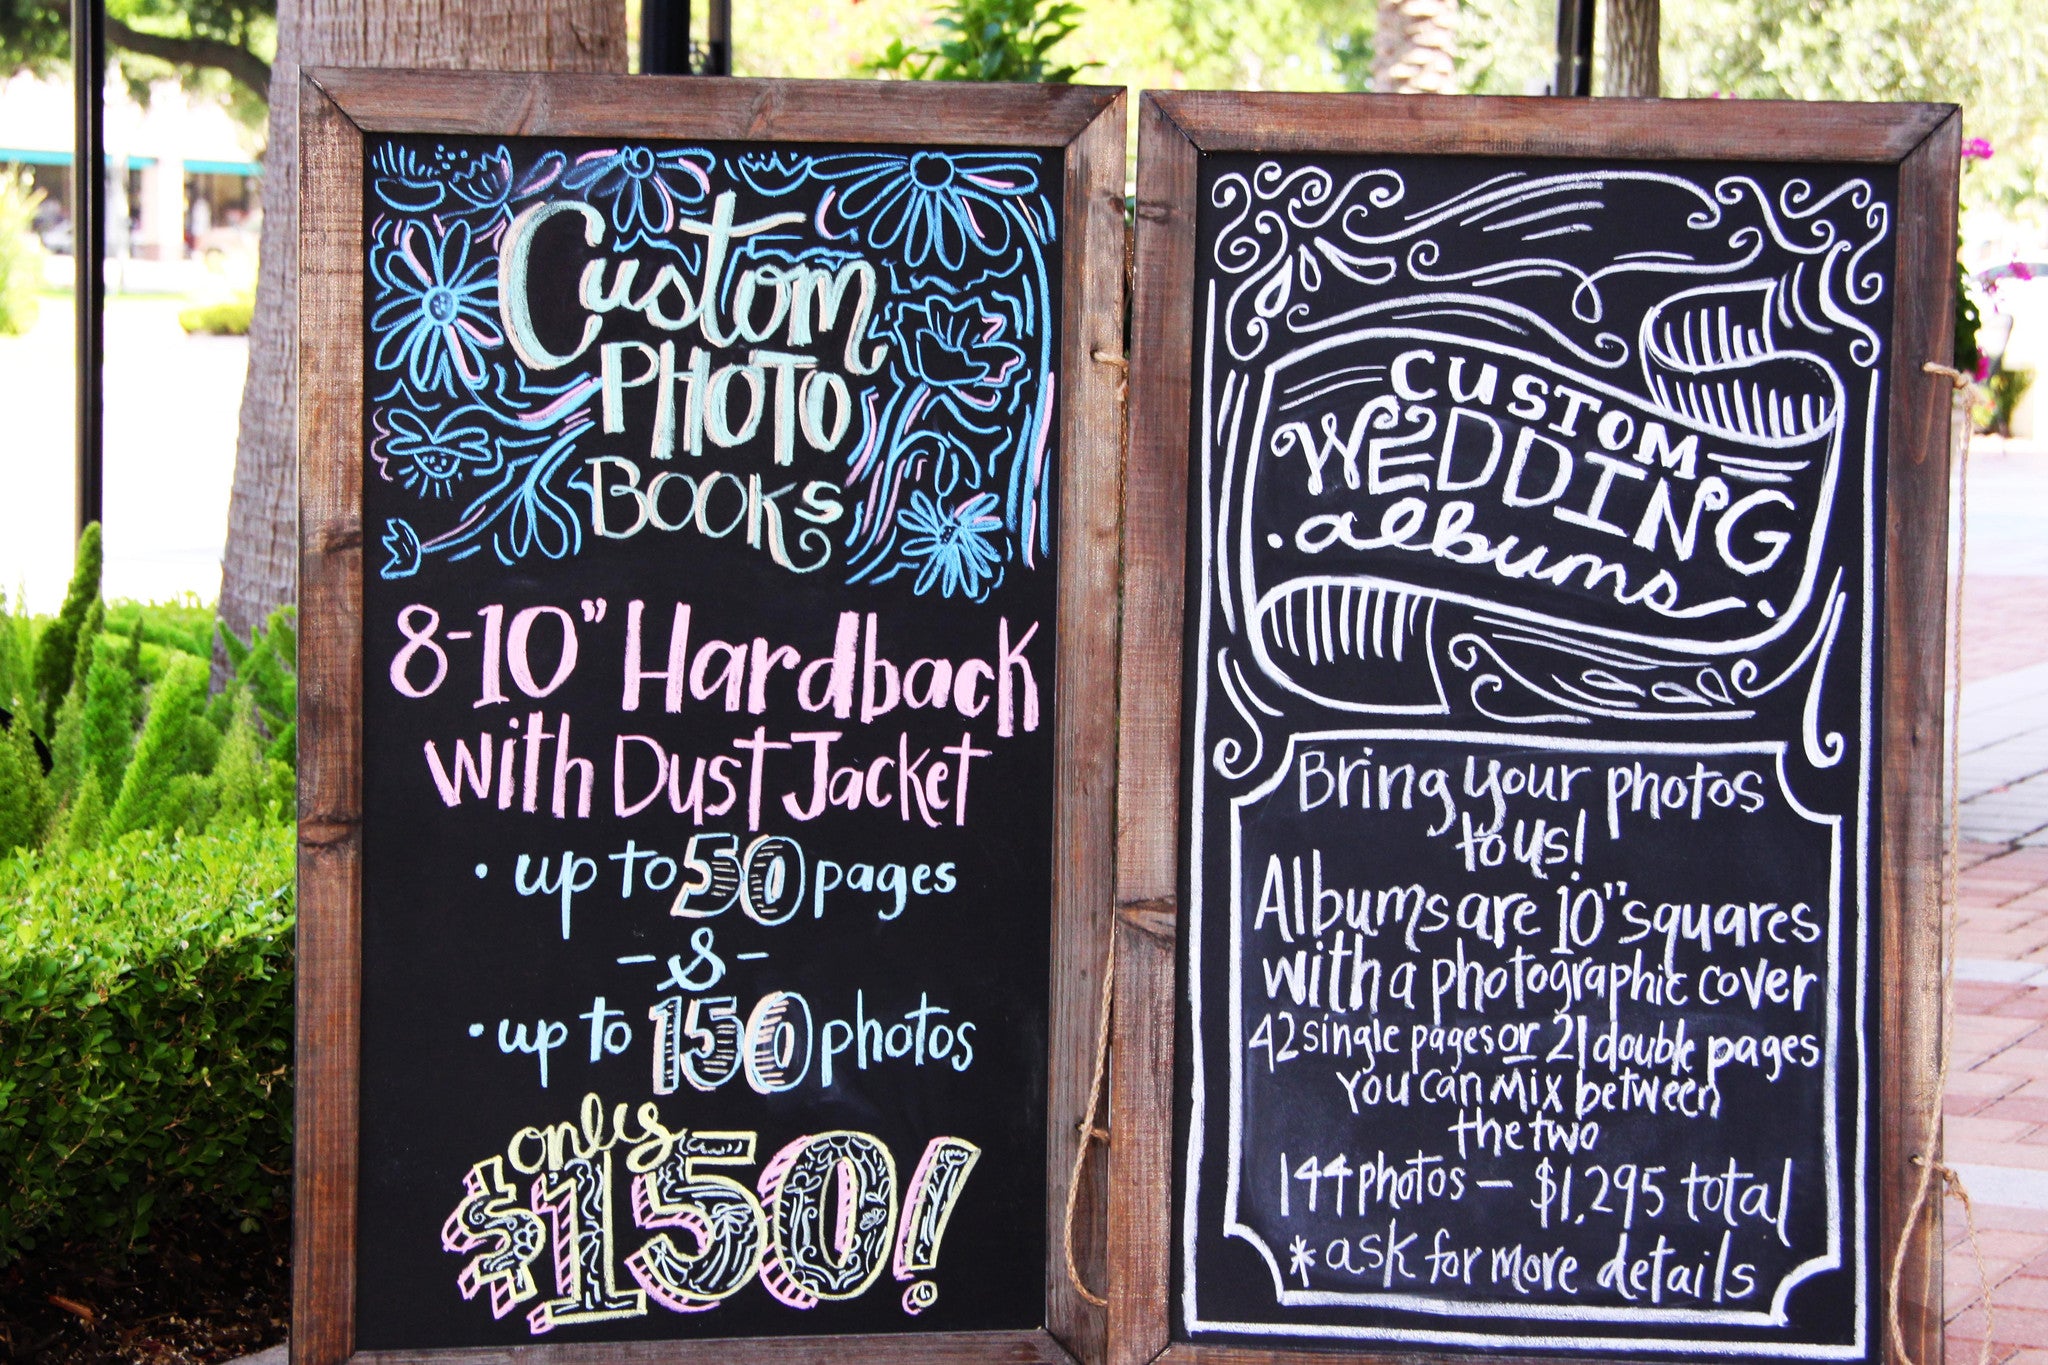 Custom
PHOTO
BOOKS
8-10" Hardback
with Dust Jacket
• up to 50 pages
- & -
• up to 150 photos
only
$150!
CUSTOM
WEDDING
• albums •
Bring your photos
to us!
Albums are 10" squares
with a photographic cover
42 single pages or 21 double pages
you can mix between
the two
144 photos - $1,295 total
* ask for more details